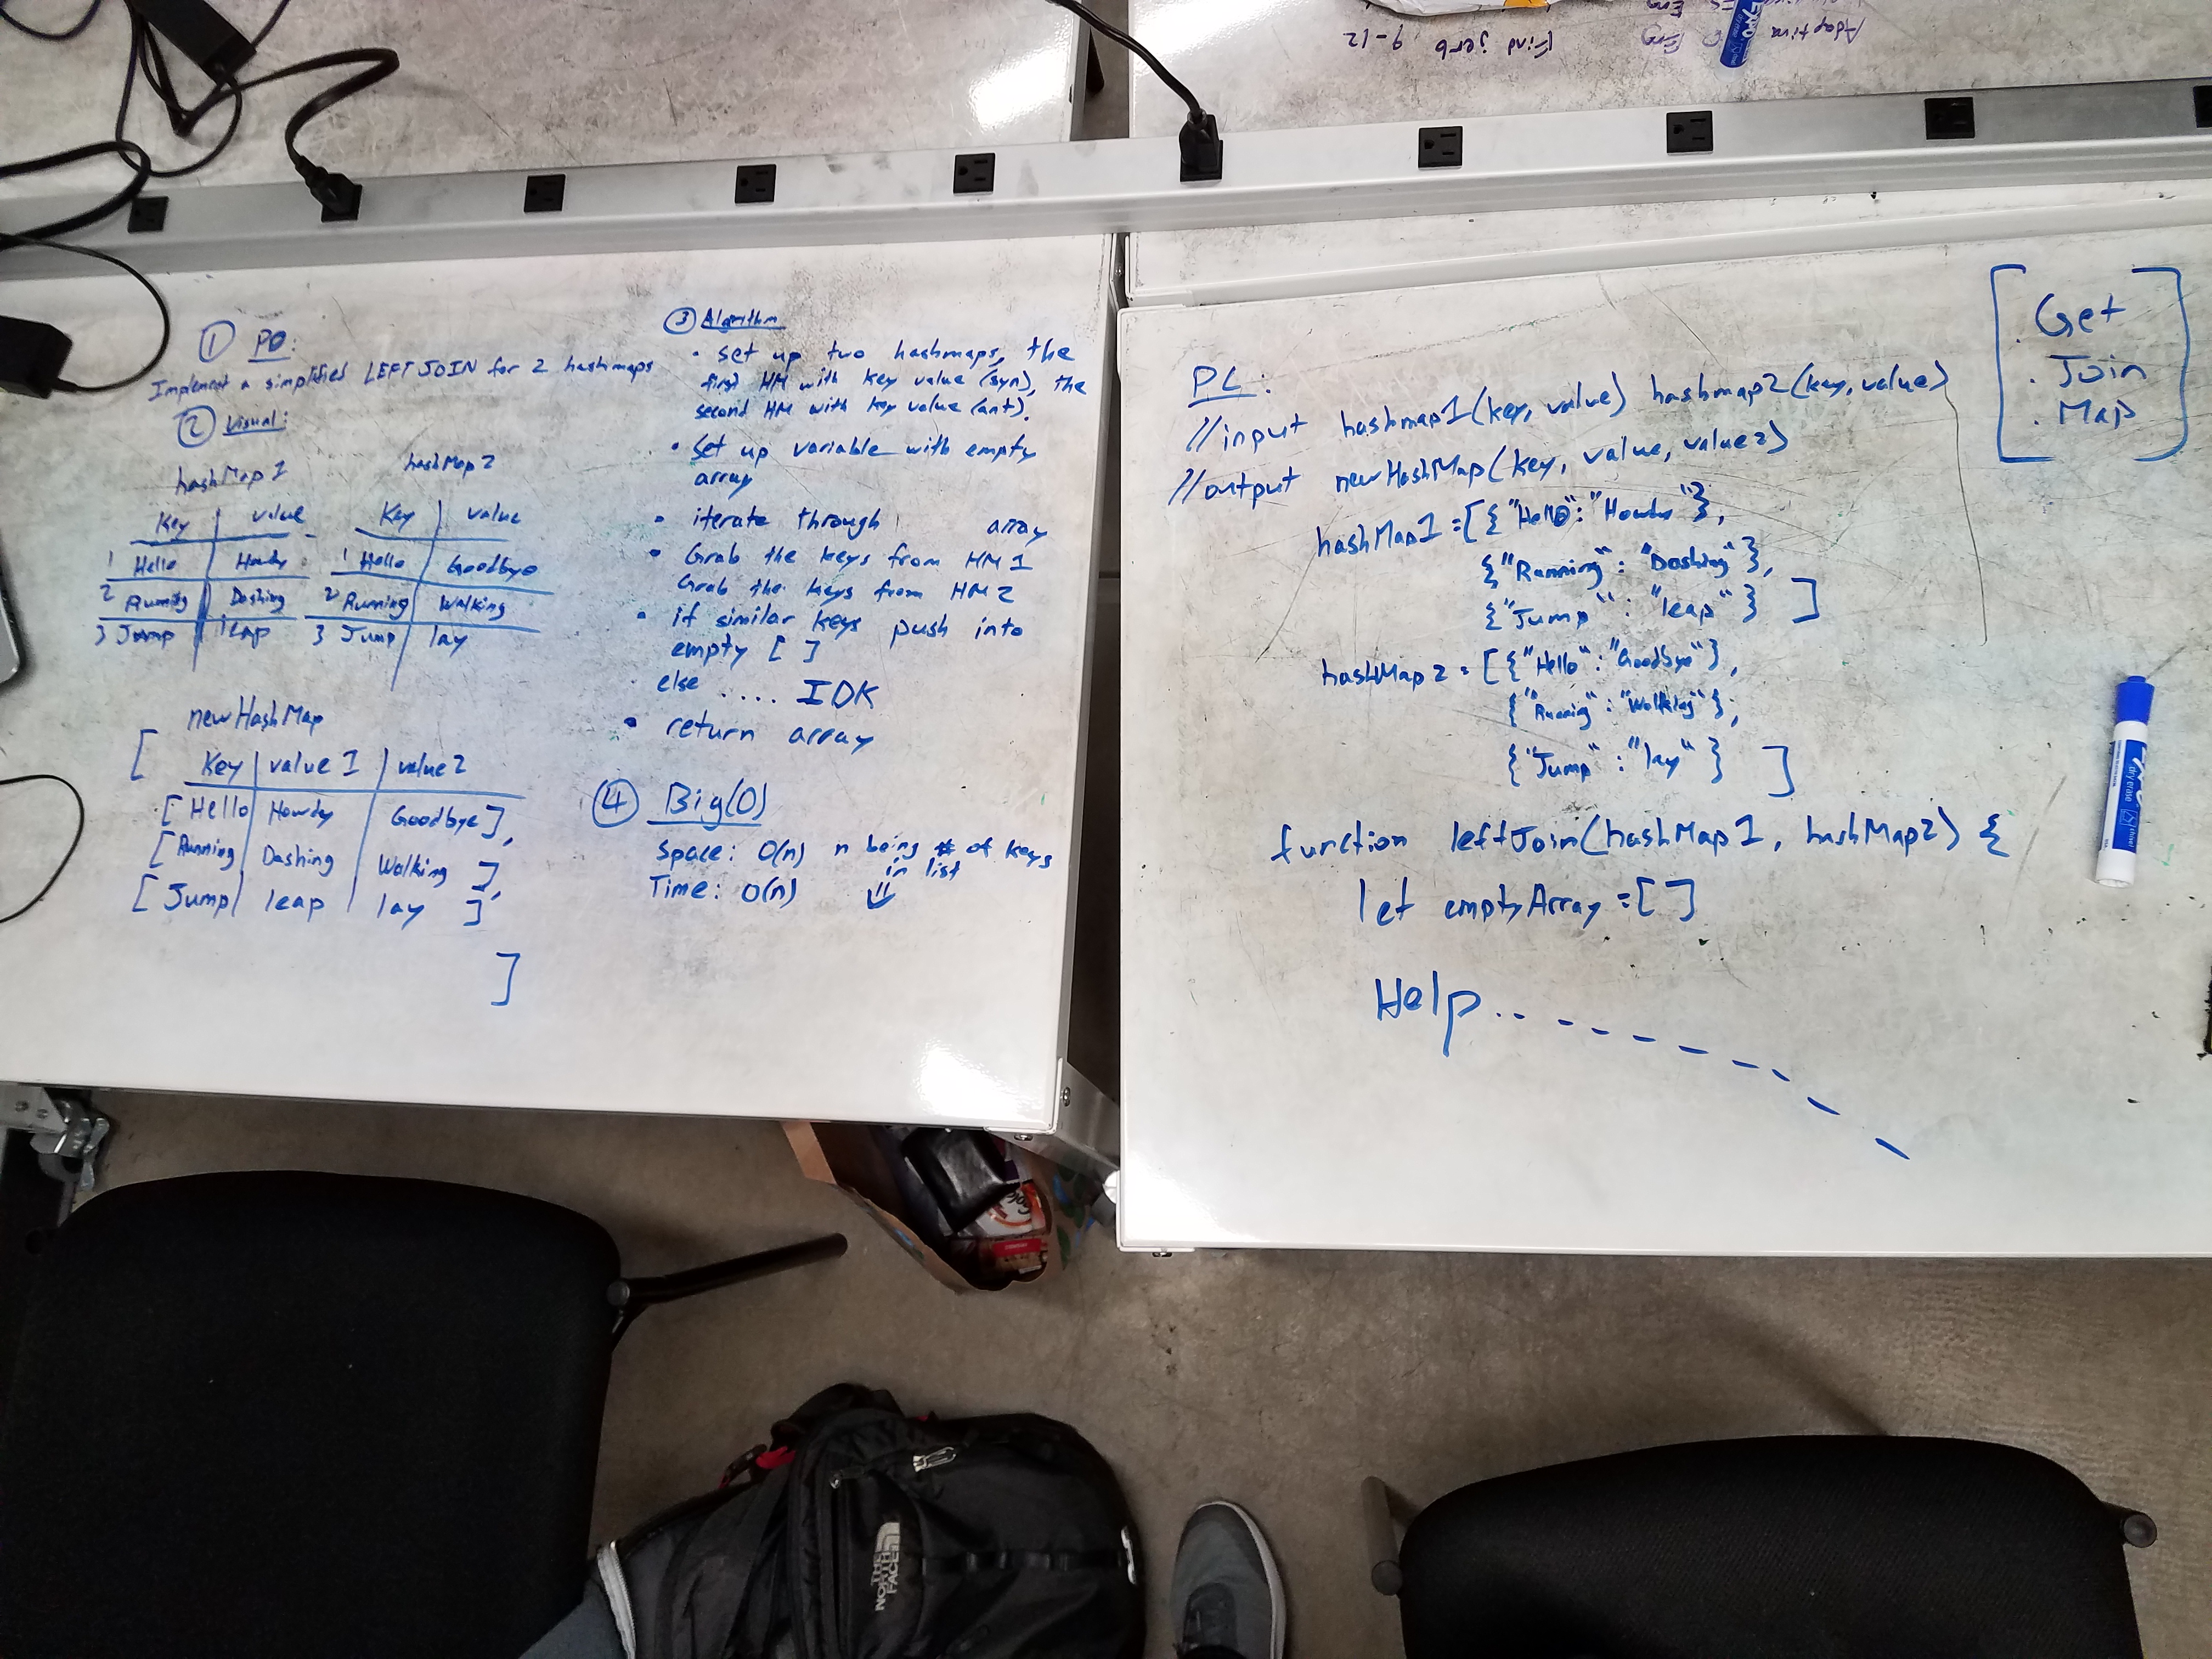 ① PD:
Implement a simplified LEFT JOIN for 2 hashmaps
② Visual:
hashMap 1
Key | value
1 Hello | Howdy
2 Running | Dashing
3 Jump | leap
hashMap 2
Key | value
1 Hello | Goodbye
2 Running | Walking
3 Jump | lay
newHashMap
[
Key | value 1 | value 2
[Hello | Howdy | Goodbye],
[Running | Dashing | Walking],
[Jump | leap | lay]
]
③ Algorithm
• set up two hashmaps, the
first HM with key value (syn), the
second HM with key value (ant).
• Set up variable with empty
array
• iterate through array
• Grab the keys from HM 1
Grab the keys from HM 2
• if similar keys push into
empty [ ]
else .... IDK
• return array
④ Big(O)
Space: O(n) n being # of keys
in list
Time: O(n)
PC:
//input hashmap1(key, value) hashmap2(key, value)
//output newHashMap(key, value, value2)
hashMap1 = [{"Hello": "Howdy"},
{"Running": "Dashing"},
{"Jump": "leap"}]
hashMap2 = [{"Hello": "Goodbye"},
{"Running": "Walking"},
{"Jump": "lay"}]
function leftJoin(hashMap1, hashMap2) {
let emptyArray = [ ]
Help...
[Get
. Join
. Map]
THE
NORTH
FACE
Find Serb 9-12
dry erase